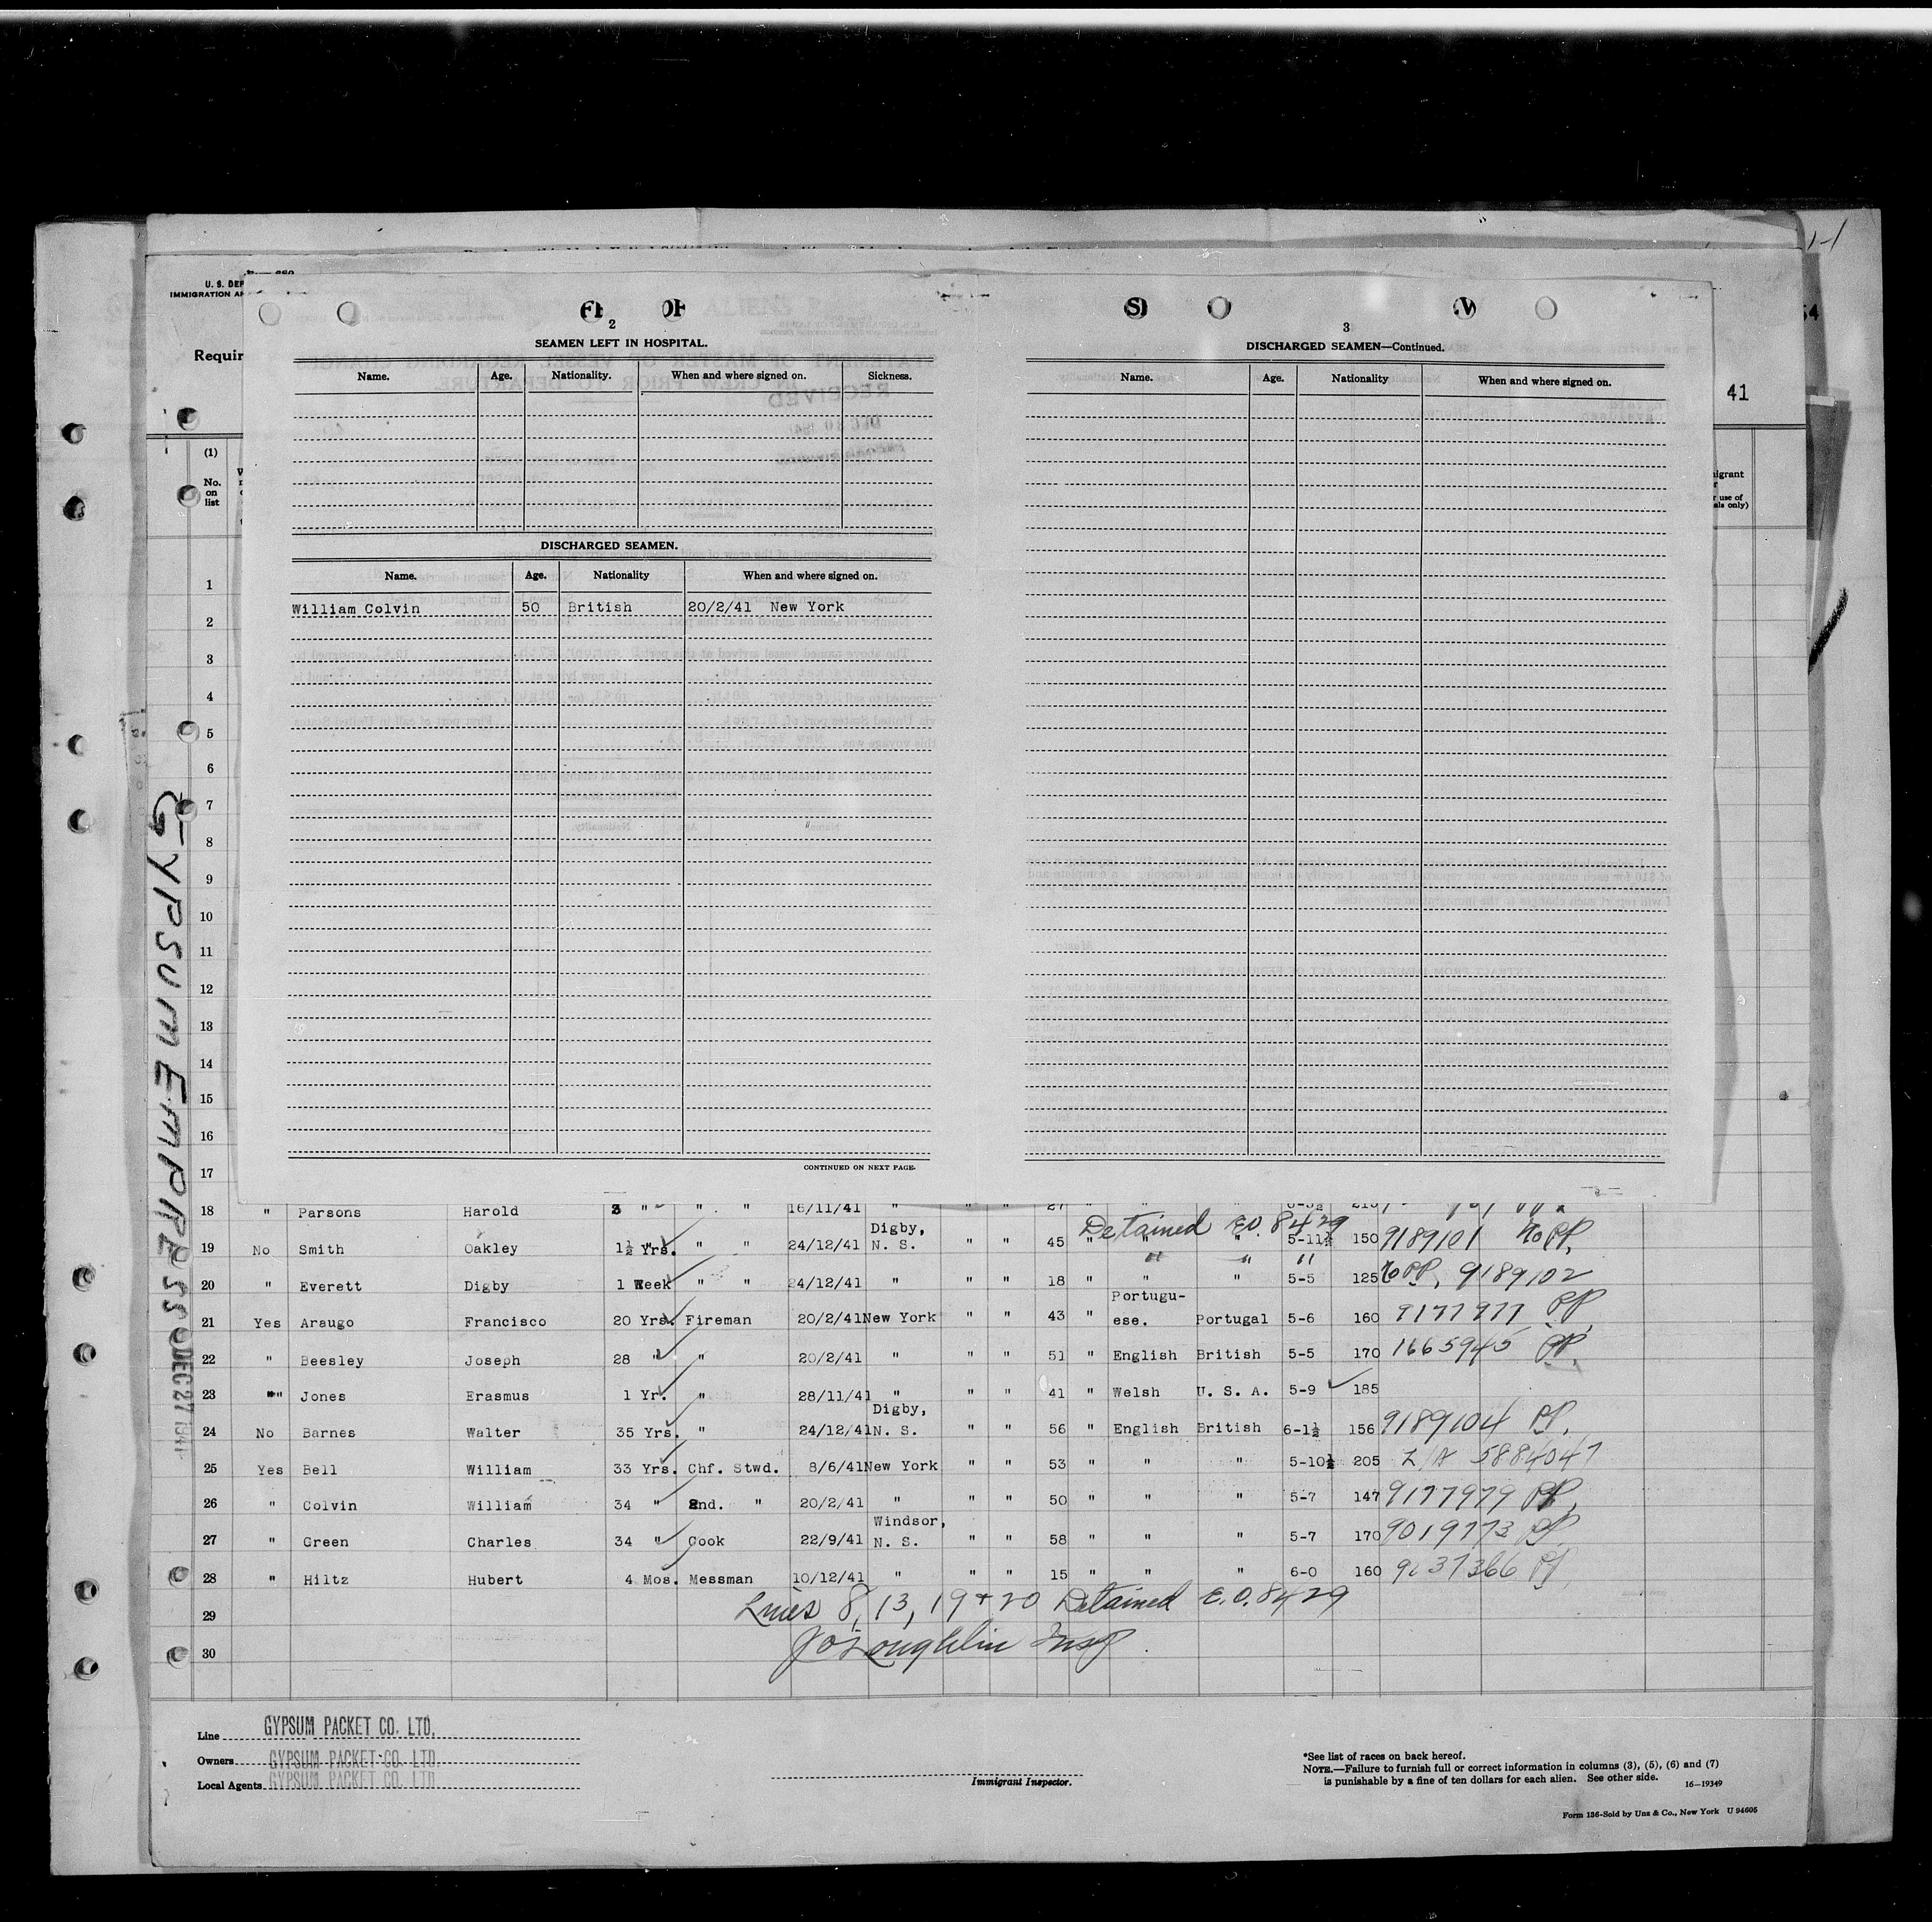 U. S. DEP
IMMIGRATION AN
Requir
41
2
SEAMEN LEFT IN HOSPITAL.
Name. Age. Nationality. When and where signed on. Sickness.
DISCHARGED SEAMEN.
Name. Age. Nationality When and where signed on.
William Colvin 50 British 20/2/41 New York
CONTINUED ON NEXT PAGE.
3
DISCHARGED SEAMEN—Continued.
Name. Age. Nationality When and where signed on.
(1)
No. on list
1
2
3
4
5
6
7
8
9
10
11
12
13
14
15
16
17
GYPSUM EMPRESS
DEC 27 1941
18 " Parsons Harold 3 " " " 16/11/41 " " " 27 " " "
Detained E.O. 8429
19 No Smith Oakley 1½ Yrs. " " 24/12/41 Digby, N. S. " " 45 " " " 5-11½ 150 9189101 No PP.
" " "
20 " Everett Digby 1 Week " " 24/12/41 " " " 18 " " " 5-5 125 No PP. 9189102
21 Yes Araugo Francisco 20 Yrs. Fireman 20/2/41 New York " " 43 " Portugu-ese. Portugal 5-6 160 9177977 PP.
22 " Beesley Joseph 28 " " 20/2/41 " " " 51 " English British 5-5 170 1665945 PP.
23 " Jones Erasmus 1 Yr. " 28/11/41 " " " 41 " Welsh U. S. A. 5-9 185
24 No Barnes Walter 35 Yrs. " 24/12/41 Digby, N. S. " " 56 " English British 6-1½ 156 9189104 PP.
25 Yes Bell William 33 Yrs. Chf. Stwd. 8/6/41 New York " " 53 " " " 5-10½ 205 5884047
26 " Colvin William 34 " 2nd. " 20/2/41 " " " 50 " " " 5-7 147 9177979 PP.
27 " Green Charles 34 " Cook 22/9/41 Windsor, N. S. " " 58 " " " 5-7 170 9019773 PP.
28 " Hiltz Hubert 4 Mos. Messman 10/12/41 " " " 15 " " " 6-0 160 PP
29 Lines 8, 13, 19 + 20 Detained E.O. 8429
30 J O'Loughlin Insp.
Line GYPSUM PACKET CO. LTD.
Owners GYPSUM PACKET CO. LTD.
Local Agents GYPSUM PACKET CO. LTD
Immigrant Inspector.
*See list of races on back hereof.
NOTE.—Failure to furnish full or correct information in columns (3), (5), (6) and (7)
is punishable by a fine of ten dollars for each alien. See other side.
16—19349
Form 136-Sold by Unz & Co., New York U 94605